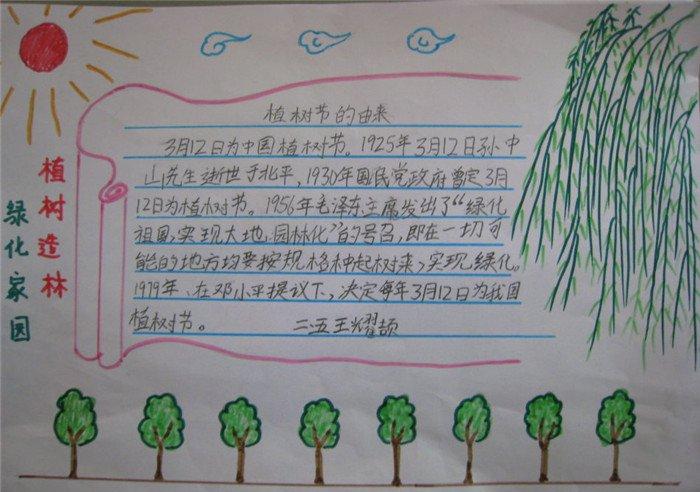 植树造林
绿化家园
植树节的由来
3月12日为中国植树节。1925年3月12日孙中
山先生逝世于北平，1930年国民党政府曾定3月
12日为植树节。1956年毛泽东主席发出了“绿化
祖国，实现大地园林化”的号召，即在一切可
能的地方均要按规格种起树来，实现绿化。
1979年、在邓小平提议下，决定每年3月12日为我国
植树节。 二.五王耀颉